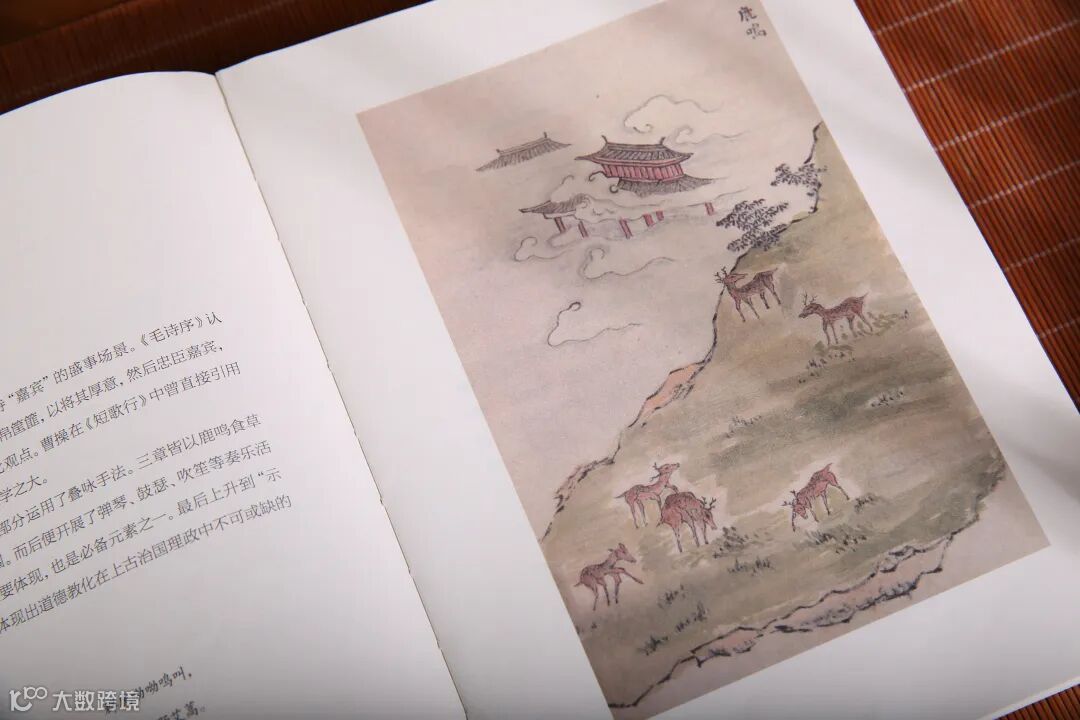 “嘉宾”的盛事场景。《毛诗序》认
帛筐篚，以将其厚意，然后忠臣嘉宾，
观点。曹操在《短歌行》中曾直接引用
学之大。
部分运用了叠咏手法。三章皆以鹿鸣食草
而后便开展了弹琴、鼓瑟、吹笙等奏乐活
要体现，也是必备元素之一。最后上升到“示
体现出道德教化在上古治国理政中不可或缺的
呦呦鸣叫，
艾蒿。
鹿鸣
大数跨境